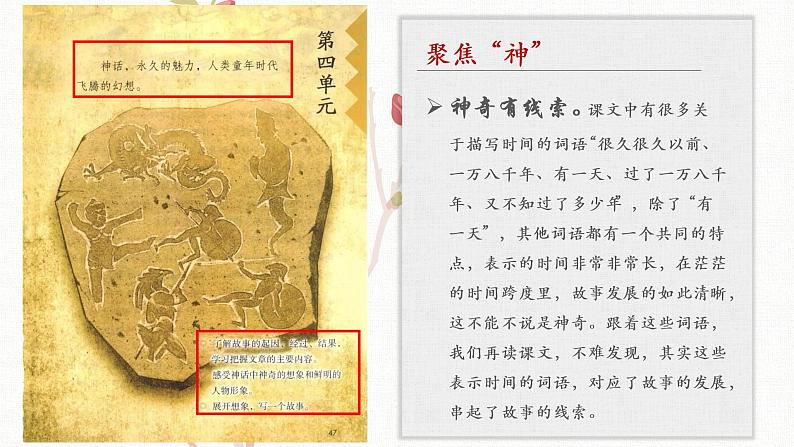 神话，永久的魅力，人类童年时代
飞腾的幻想。
第四单元
了解故事的起因、经过、结果，
学习把握文章的主要内容。
感受神话中神奇的想象和鲜明的
人物形象。
展开想象，写一个故事。
47
聚焦“神”
神奇有线索。课文中有很多关
于描写时间的词语“很久很久以前、
一万八千年、有一天、过了一万八千
年、又不知过了多少年”，除了“有
一天”，其他词语都有一个共同的特
点，表示的时间非常非常长，在茫茫
的时间跨度里，故事发展的如此清晰，
这不能不说是神奇。跟着这些词语，
我们再读课文，不难发现，其实这些
表示时间的词语，对应了故事的发展，
串起了故事的线索。